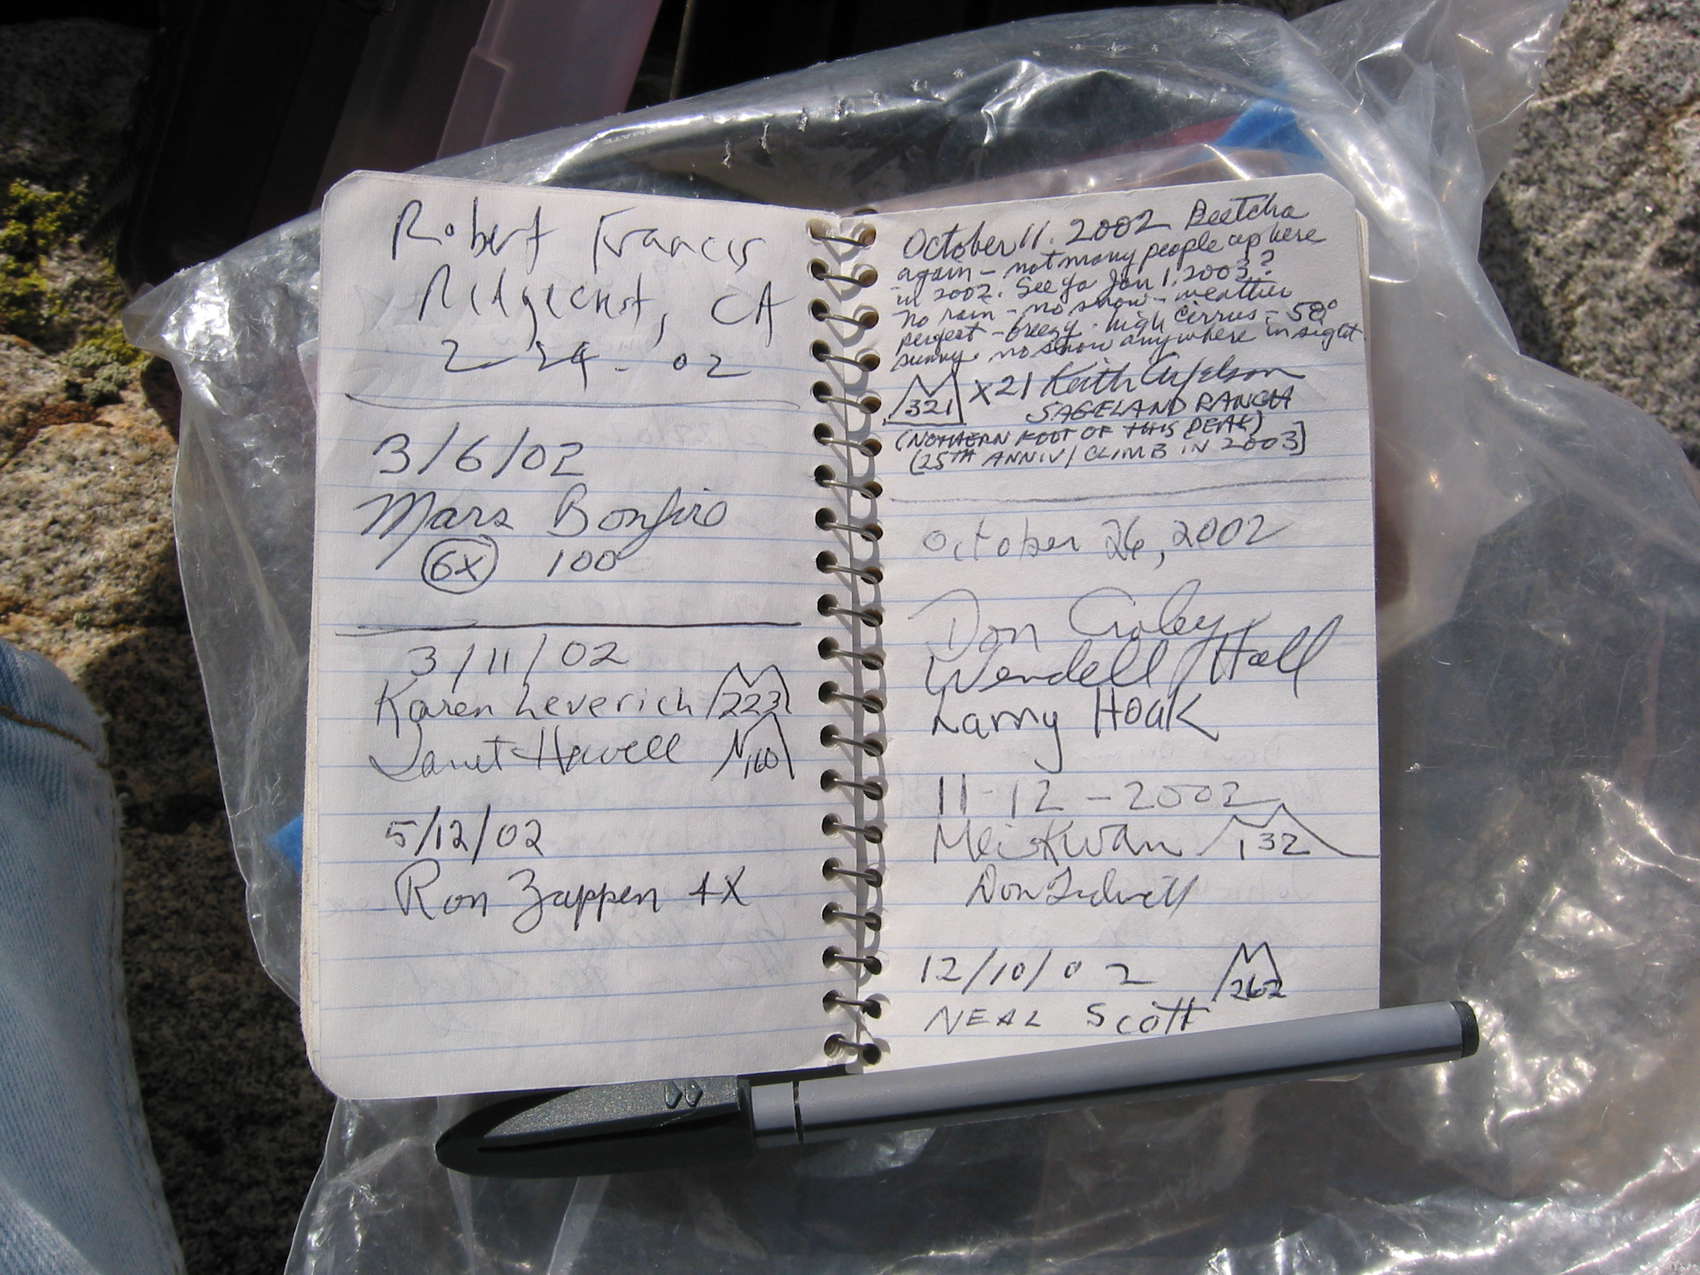 Robert Francis
Ridgecrest, CA
2-24-02
3/6/02
Mars Bonfire
6X 100
3/11/02
Karen Leverich 223
Janet Howell 160
5/12/02
Ron Zappen 4X
October 11. 2002 Beetcha
again - not many people up here
in 2002. See ya Jan 1. 2003?
No rain - no snow - weather
perfect - breezy - high cirrus - 58°
sunny. no snow anywhere in sight
321 X21 Keith
SAGELAND RANCH
(NOTHERN FOOT OF THIS PEAK)
(25TH ANNIV/CLIMB IN 2003)
October 26, 2002
Don Croley
Wendell Hall
Larry Hoak
11-12-2002
Mei Kwan 132
Don
12/10/02 262
NEAL Scott